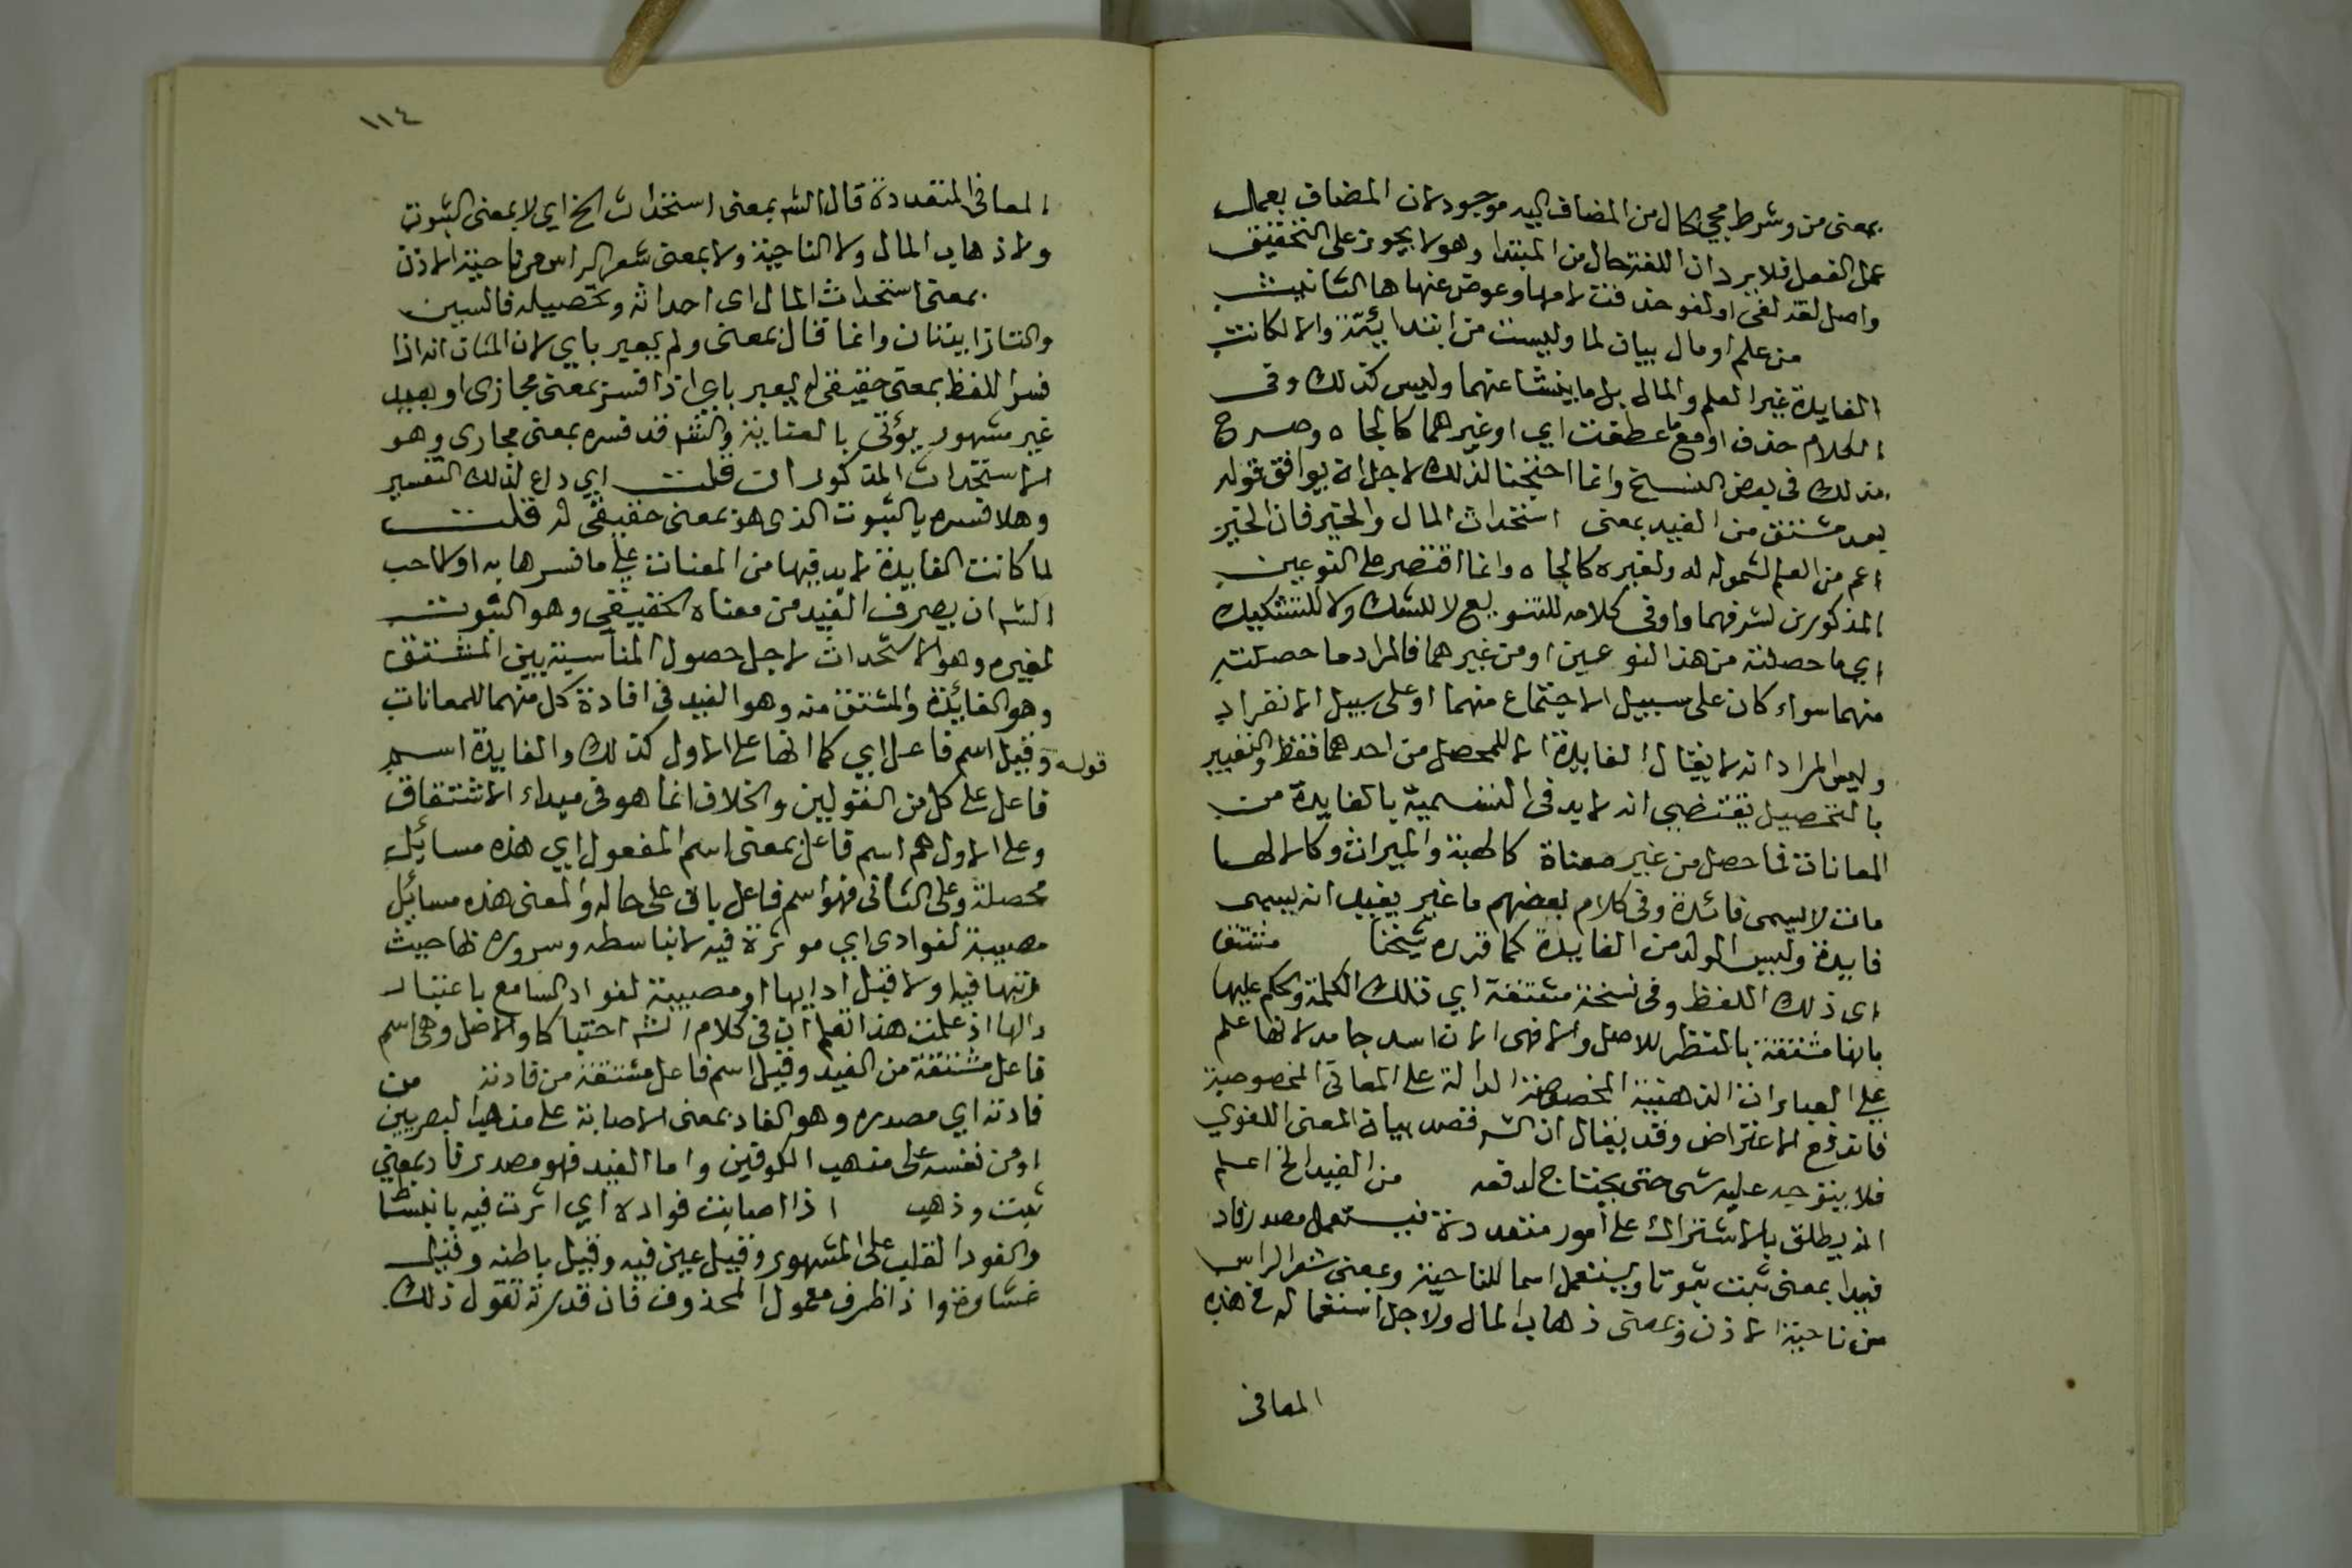 بمعنى من وشرط مجي الحال من المضاف اليه موجود لان المضاف يعمل
عمل الفعل فلا يرد ان اللغة حال من المبتدا وهو لا يجوز على التحقيق
واصل لغة لغي او لغو حذفت لامها وعوض عنها ها التانيث
من علم او مال بيان لما وليست من ابتدائية والا لكانت
الفايدة غير العلم والمال بل ما ينشا عنهما وليس كذلك وفى
الكلام حذف او مع ما عطفت اي او غيرهما كالجاه وصرح
بذلك فى بعض النسخ وانما احتجنا لذلك لاجل ان يوافق قوله
بعد مشتق من الفيد بمعنى استحداث المال والخير فان الخير
اعم من العلم لشموله له ولغيره كالجاه وانما اقتصر على النوعين
المذكورين لشرفهما واو فى كلامه للتنويع لا للشك ولا للتشكيك
اي ما حصلته من هذا النوعين او من غيرهما فالمراد ما حصلته
منهما سواء كان على سبيل الاجتماع منهما او على سبيل الانفراد
وليس المراد انه لا يقال الفايدة الا للمحصل من احدهما فقط والتعبير
بالتحصيل يقتضي انه لا بد فى التسمية بالفايدة من
المعانات فما حصل من غير معناة كالهبة والميراث وكالالها
مات لا ليسمى فائدة وفى كلام بعضهم ما غير يفيد انه يسمى
فايدة وليس الولد من الفايدة كما قرره شيخنا مشتق
اى ذلك اللفظ وفى نسخة مشتقة اي تلك الكلمة والحكم عليها
بانها مشتقة بالنظر للاصل والا فهى الان اسد جامد لانها علم
علي العبارات الذهنية المخصوصة الدالة على المعانى المخصوصة
فاندفع الاعتراض وقد يقال ان الشـ قصد بيان المعنى اللغوي
فلا يتوجه عليه شى حتى يحتاج لدفعه من الفيد الخ اعلم
انه يطلق بالاشتراك على امور متعددة فيستعمل مصدر فاد
فيدا بمعنى ثبت ثبوتا ويستعمل اسما للناحية وبمعنى شعر الراس
من ناحية الاذن وبمعنى ذهاب المال ولاجل استعماله فى هذه
المعانى
١١٤
المعانى المتعددة قال الشـ بمعنى استحداث الخ اي لا بمعنى الثبوت
ولا ذهاب المال ولا الناحية ولا بمعنى شعر الراس من ناحية الاذن
بمعنى استحداث المال اى احداثه وتحصيله فالسين
والتا زايدتان وانما قال بمعنى ولم يعبر باي لان الشان انه اذا
فسر اللفظ بمعنى حقيقى له يعبر باي اذا فسر بمعنى مجازى او بعيد
غير مشهور يؤتى بالعناية والشـ قد فسره بمعنى مجازى وهو
الاستحداث المذكور ان قلت اي داع لذلك التفسير
وهلا فسره بالثبوت الذى هو بمعنى حقيقى له قلت
لما كانت الفايدة لا بد فيها من المعنات علي ما فسرها به اولا احب
الشـ ان يصرف الفيد من معناه الحقيقي وهو الثبوت
لغيره وهو الاستحداث لاجل حصول المناسبة بين المشتق
وهو الفائدة والمشتق منه وهو الفيد فى افادة كل منهما للمعانات
قوله وقيل اسم فاعل اي كما انها على الاول كذلك والفايدة اسم
فاعل على كل من القولين والخلاف انما هو فى مبداء الاشتقاق
وعلى الاول هم اسم فاعل بمعنى اسم المفعول اي هذه مسائل
محصلة وعلى الثانى فهو اسم فاعل باق على حاله والمعنى هذه مسائل
مصيبة لفوادى اي موثرة فيه لانباسطه وسروره بها حيث
رتبها فيه ولا قبل ادايها او مصيبة لفواد السامع باعتبار
دالها اذ علمت هذا تعلم ان فى كلام الشـ احتباكا والاصل وهى اسم
فاعل مشتقة من الفيد وقيل اسم فاعل مشتقة من فادته من
فادته اي مصدره وهو الفاد بمعنى الاصابة على مذهب البصريين
او من نفسه على مذهب الكوفين واما الفيد فهو مصدر فاد بمعنى
ثبت وذهب اذا اصابت فواده اي اثرت فيه بانبسا
ط
والفود القلب على المشهور وقيل عين فيه وقيل باطنه وقيل
غشاوة واذا ظرف معمول لمحذوف فان قدرته تقول ذلك